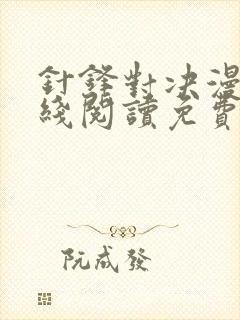 針鋒對决漫
綫閱讀免費
阮成發